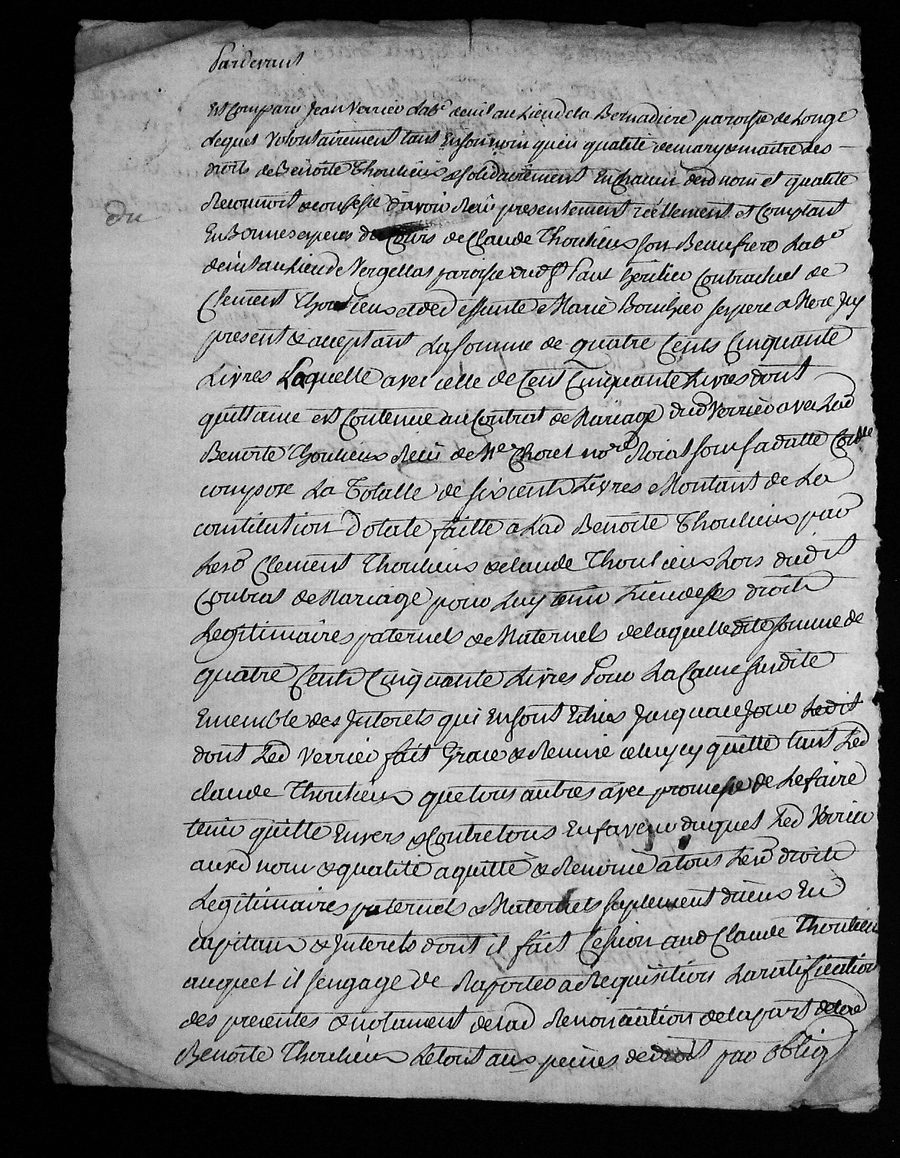 Pardevant
Est Comparu Jean Verrier Labr demt au Lieu de la Bernadiere paroisse de Longe
Lequel Volontairement tant En son nom qu'en qualité de mary & maitre des
droits de Benoite Thoulieux & solidairement En Chacun desd nom et qualité
Reconnoit & confesse d'avoir Reçu presentement reellement et Comptant
du
En Bonnes especes de Cours de Claude Thoulieux son Beaufrere Labr
demt au Lieu de Vergellas paroisse dud St Paul heritier Contractuel de
Clement Thoulieux et de deffunte Marie Bouchet ses pere & Mere Icy
present & acceptant La somme de quatre Cents Cinquante
Livres Laquelle avec celle de Cent Cinquante Livres dont
quittance est Contenue au Contrat de Mariage dud Verrier avec Lad
Benoite Thoulieux Reçu de Me Choret nore Roial sous sa datte
compose La Totalle de six cents Livres Montant de La
constitution Dotale faitte a Lad Benoite Thoulieux par
Lesd Clement Thoulieux & Claude Thoulieux Lors dudit
Contrat de Mariage pour Luy tenir Lieu de ses droits
Legitimaires paternels & Maternels de laquelle dite somme de
quatre Cents Cinquante Livres Pour La Cause susdite
Ensemble des Interets qui En sont Echus Jusqu'au Jour Ledit
dont Led Verrier fait Grace & Remise celuy cy quitte tant Led
Claude Thoulieux que tous autres avec promesse de Le faire
tenir quitte Envers & Contre tous En faveur duquel Led Verrier
auxd nom & qualité a quitté & Renoncé a tous Lesd droits
Legitimaires paternels & Maternels suplement d'iceux En
capitaux & Interets dont il fait Cession aud Claude Thoulieux
auquel il s'engage de Raporter a Requisition La ratification
des presentes & notament de Lad Renonciation de la part de Lad
Benoite Thoulieux Le tout aux peines de droit par oblig